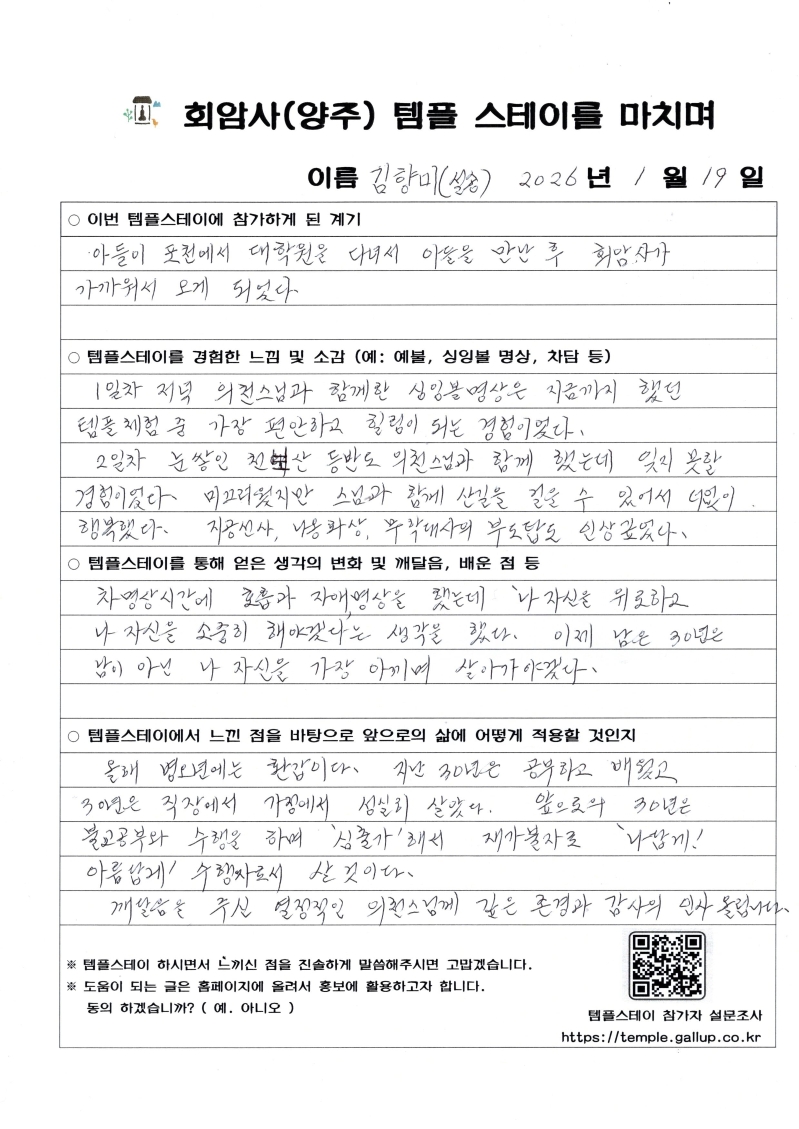 회암사(양주) 템플 스테이를 마치며
이름 김향미(설송) 2026년 1월 19일
○ 이번 템플스테이에 참가하게 된 계기
아들이 포천에서 대학원을 다녀서 아들을 만난 후 회암사가
가까워서 오게 되었다.
○ 템플스테이를 경험한 느낌 및 소감 (예: 예불, 싱잉볼 명상, 차담 등)
1일차 저녁 의천스님과 함께한 싱잉볼명상은 지금까지 했던
템플체험 중 가장 편안하고 힐링이 되는 경험이었다.
2일차 눈쌓인 천보산 등반도 의천스님과 함께 했는데 잊지 못할
경험이었다. 미끄러웠지만 스님과 함께 산길을 걸을 수 있어서 더없이
행복했다. 지공선사, 나옹화상, 무학대사의 부도탑도 인상깊었다.
○ 템플스테이를 통해 얻은 생각의 변화 및 깨달음, 배운 점 등
차명상시간에 호흡과 자애명상을 했는데 '나 자신을 위로하고
나 자신을 소중히 해야겠다'는 생각을 했다. 이제 남은 30년은
남이 아닌 나 자신을 가장 아끼며 살아가야겠다.
○ 템플스테이에서 느낀 점을 바탕으로 앞으로의 삶에 어떻게 적용할 것인지
올해 병오년에는 환갑이다. 지난 30년은 공부하고 배웠고
30년은 직장에서 가정에서 성실히 살았다. 앞으로의 30년은
불교공부와 수행을 하며 '심출가'해서 재가불자로 '나답게!
아름답게!' 수행자로서 살 것이다.
깨달음을 주신 열정적인 의천스님께 깊은 존경과 감사의 인사 올립니다.
※ 템플스테이 하시면서 느끼신 점을 진솔하게 말씀해주시면 고맙겠습니다.
※ 도움이 되는 글은 홈페이지에 올려서 홍보에 활용하고자 합니다.
동의 하겠습니까? ( 예. 아니오 )
템플스테이 참가자 설문조사
https://temple.gallup.co.kr